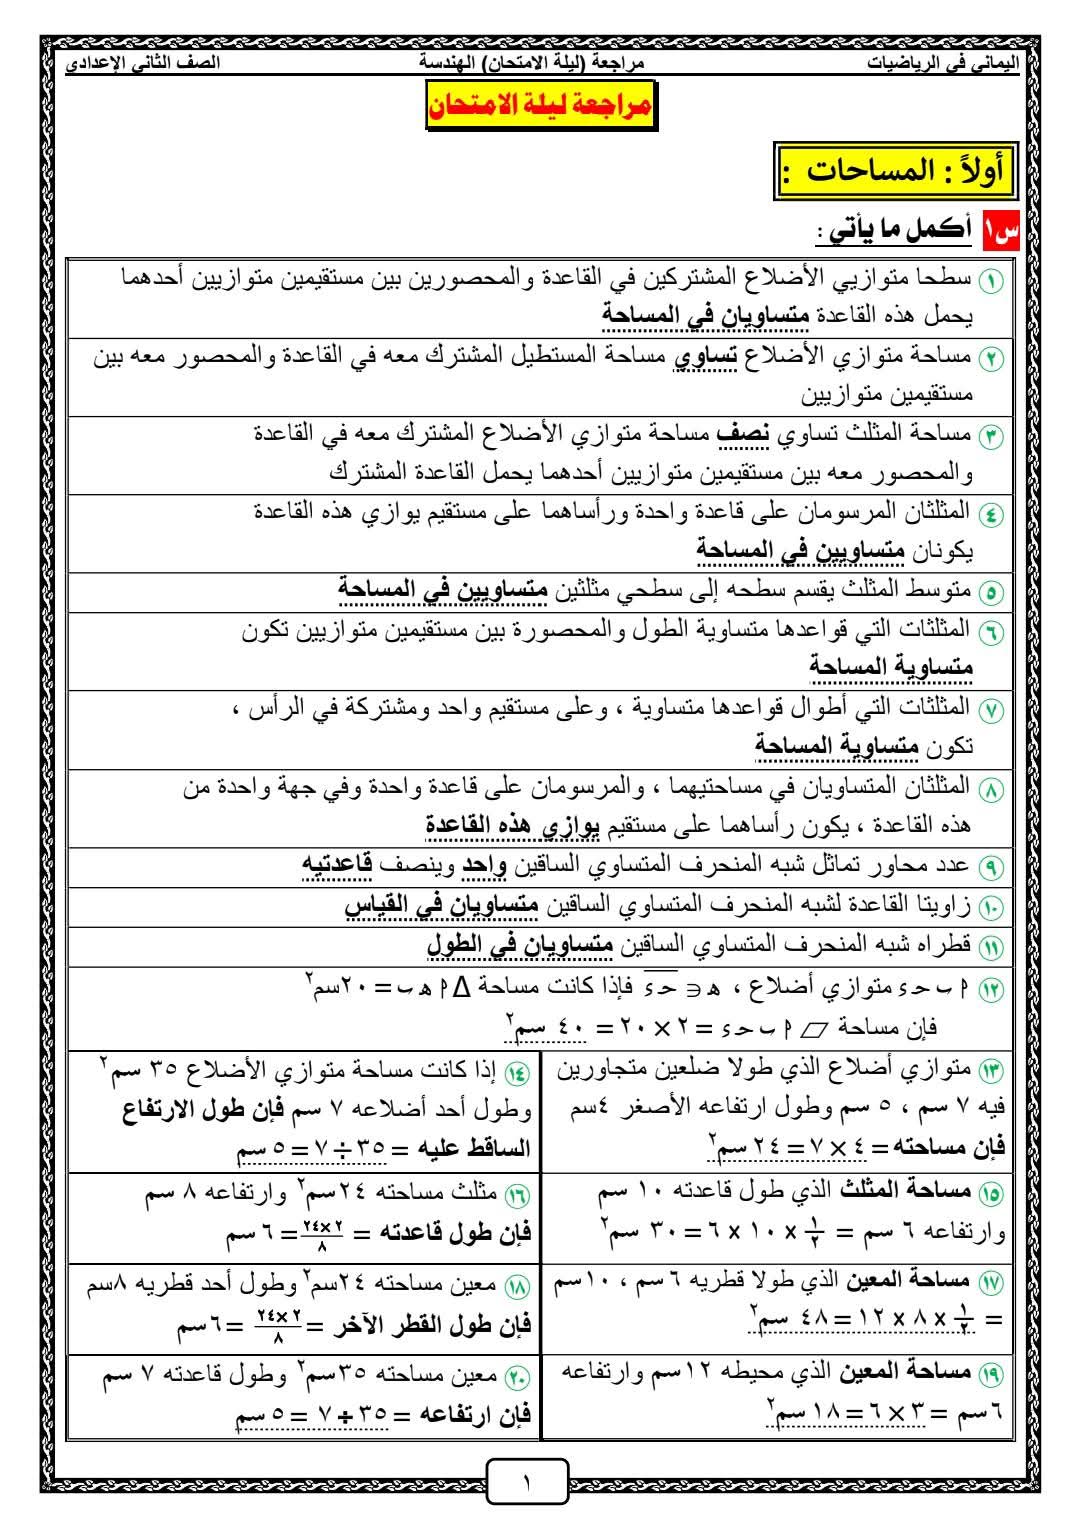 اليماني في الرياضيات مراجعة (ليلة الامتحان) الهندسة الصف الثاني الإعدادي
مراجعة ليلة الامتحان
أولاً : المساحات :
س١ أكمل ما يأتي :
١ سطحا متوازيي الأضلاع المشتركين في القاعدة والمحصورين بين مستقيمين متوازيين أحدهما
يحمل هذه القاعدة متساويان في المساحة
٢ مساحة متوازي الأضلاع تساوي مساحة المستطيل المشترك معه في القاعدة والمحصور معه بين
مستقيمين متوازيين
٣ مساحة المثلث تساوي نصف مساحة متوازي الأضلاع المشترك معه في القاعدة
والمحصور معه بين مستقيمين متوازيين أحدهما يحمل القاعدة المشترك
٤ المثلثان المرسومان على قاعدة واحدة ورأساهما على مستقيم يوازي هذه القاعدة
يكونان متساويين في المساحة
٥ متوسط المثلث يقسم سطحه إلى سطحي مثلثين متساويين في المساحة
٦ المثلثات التي قواعدها متساوية الطول والمحصورة بين مستقيمين متوازيين تكون
متساوية المساحة
٧ المثلثات التي أطوال قواعدها متساوية ، وعلى مستقيم واحد ومشتركة في الرأس ،
تكون متساوية المساحة
٨ المثلثان المتساويان في مساحتيهما ، والمرسومان على قاعدة واحدة وفي جهة واحدة من
هذه القاعدة ، يكون رأساهما على مستقيم يوازي هذه القاعدة
٩ عدد محاور تماثل شبه المنحرف المتساوي الساقين واحد وينصف قاعدتيه
١٠ زاويتا القاعدة لشبه المنحرف المتساوي الساقين متساويان في القياس
١١ قطراه شبه المنحرف المتساوي الساقين متساويان في الطول
١٢ ا ب حـ ء متوازي أضلاع ، هـ ∋ حـ ء فإذا كانت مساحة Δ ا هـ ب = ٢٠سم٢
فإن مساحة ▱ ا ب حـ ء = ٢ × ٢٠ = ٤٠ سم٢
١٣ متوازي أضلاع الذي طولا ضلعين متجاورين
فيه ٧ سم ، ٥ سم وطول ارتفاعه الأصغر ٤سم
فإن مساحته = ٤ × ٧ = ٢٤ سم٢
١٤ إذا كانت مساحة متوازي الأضلاع ٣٥ سم٢
وطول أحد أضلاعه ٧ سم فإن طول الارتفاع
الساقط عليه = ٣٥ ÷ ٧ = ٥ سم
١٥ مساحة المثلث الذي طول قاعدته ١٠ سم
وارتفاعه ٦ سم = ١/٢ × ١٠ × ٦ = ٣٠ سم٢
١٦ مثلث مساحته ٢٤سم٢ وارتفاعه ٨ سم
فإن طول قاعدته = ٢×٢٤/٨ = ٦ سم
١٧ مساحة المعين الذي طولا قطريه ٦ سم ، ١٠سم
= ١/٢ × ٨ × ١٢ = ٤٨ سم٢
١٨ معين مساحته ٢٤سم٢ وطول أحد قطريه ٨سم
فإن طول القطر الآخر = ٢×٢٤/٨ = ٦سم
١٩ مساحة المعين الذي محيطه ١٢سم وارتفاعه
٦سم = ٣ × ٦ = ١٨ سم٢
٢٠ معين مساحته ٣٥سم٢ وطول قاعدته ٧ سم
فإن ارتفاعه = ٣٥ ÷ ٧ = ٥ سم
١